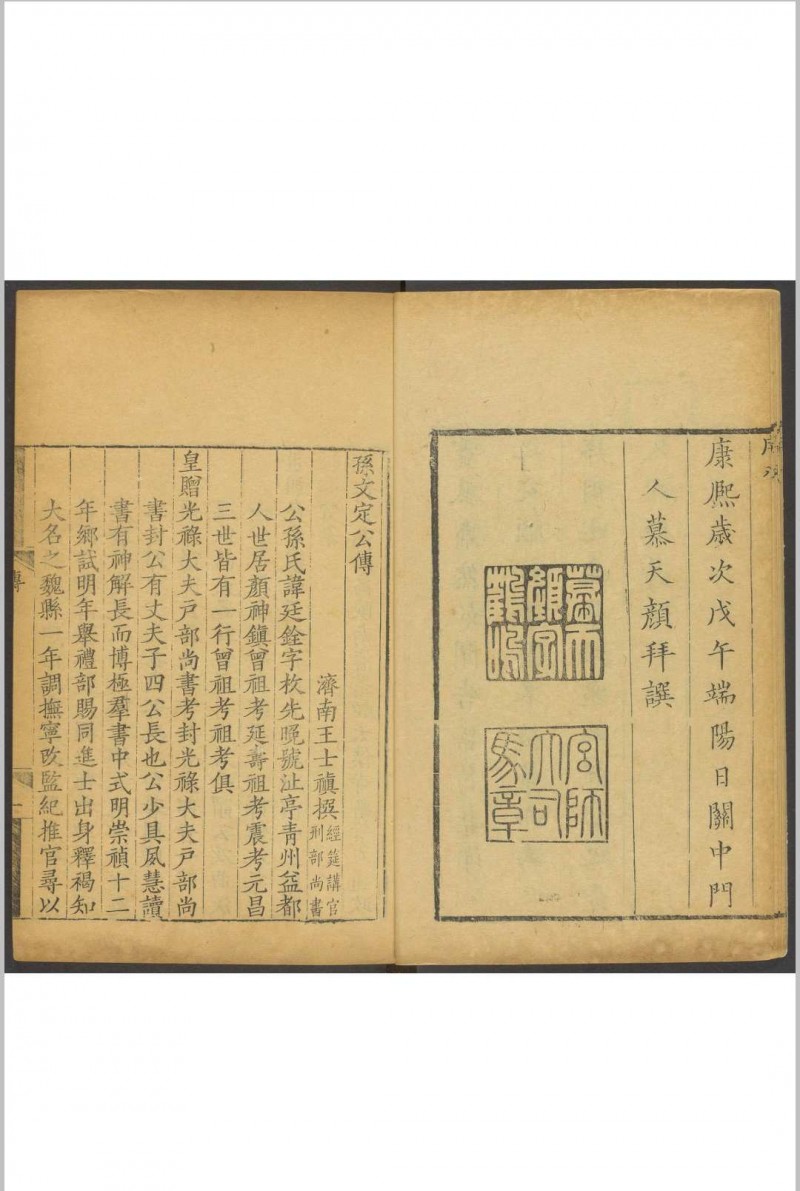 康熈歳次戊午端陽日關中門
人慕天顏拜譔
慕天
顏字
鶴鳴
宮師
大司
馬章
孫文定公傳
濟南王士禛撰 經筵講官 刑部尚書
公孫氏諱廷銓字枚先晚號沚亭靑州益都
人世居顏神鎮曾祖考延壽祖考震考元昌
三世皆有一行曾祖考祖考俱
皇贈光祿大夫戶部尚書考封光祿大夫戶部尚
書封公有丈夫子四公長也公少具夙慧讀
書有神解長而博極羣書中式明崇禎十二
年鄉試明年舉禮部賜同進士出身釋褐知
大名之魏縣一年調撫寧改監紀推官尋以
傳
一